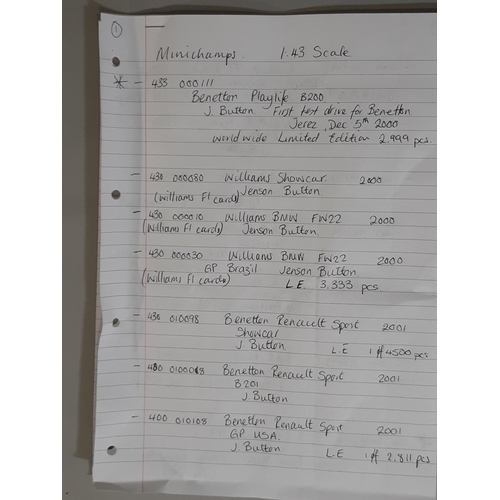 1
Minichamps 1:43 Scale
* - 433 000111
Benetton Playlife B200
J. Button First test drive for Benetton
Jerez, Dec 5th 2000
World wide Limited Edition 2.999 pcs.
- 430 000080 Williams Showcar 2000
(Williams F1 cards) Jenson Button
- 430 000010 Williams BMW FW22 2000
(Williams F1 cards) Jenson Button.
- 430 000030 Williams BMW FW22 2000
GP Brazil Jenson Button
(Williams F1 cards) L.E. 3,333 pcs
- 430 010098 Benetton Renault Sport 2001
Showcar
J. Button L.E 1 of 4500 pcs
- 400 010008 Benetton Renault Sport 2001
B201
J. Button
- 400 010108 Benetton Renault Sport 2001
GP USA.
J. Button L.E 1 of 2.811 pcs